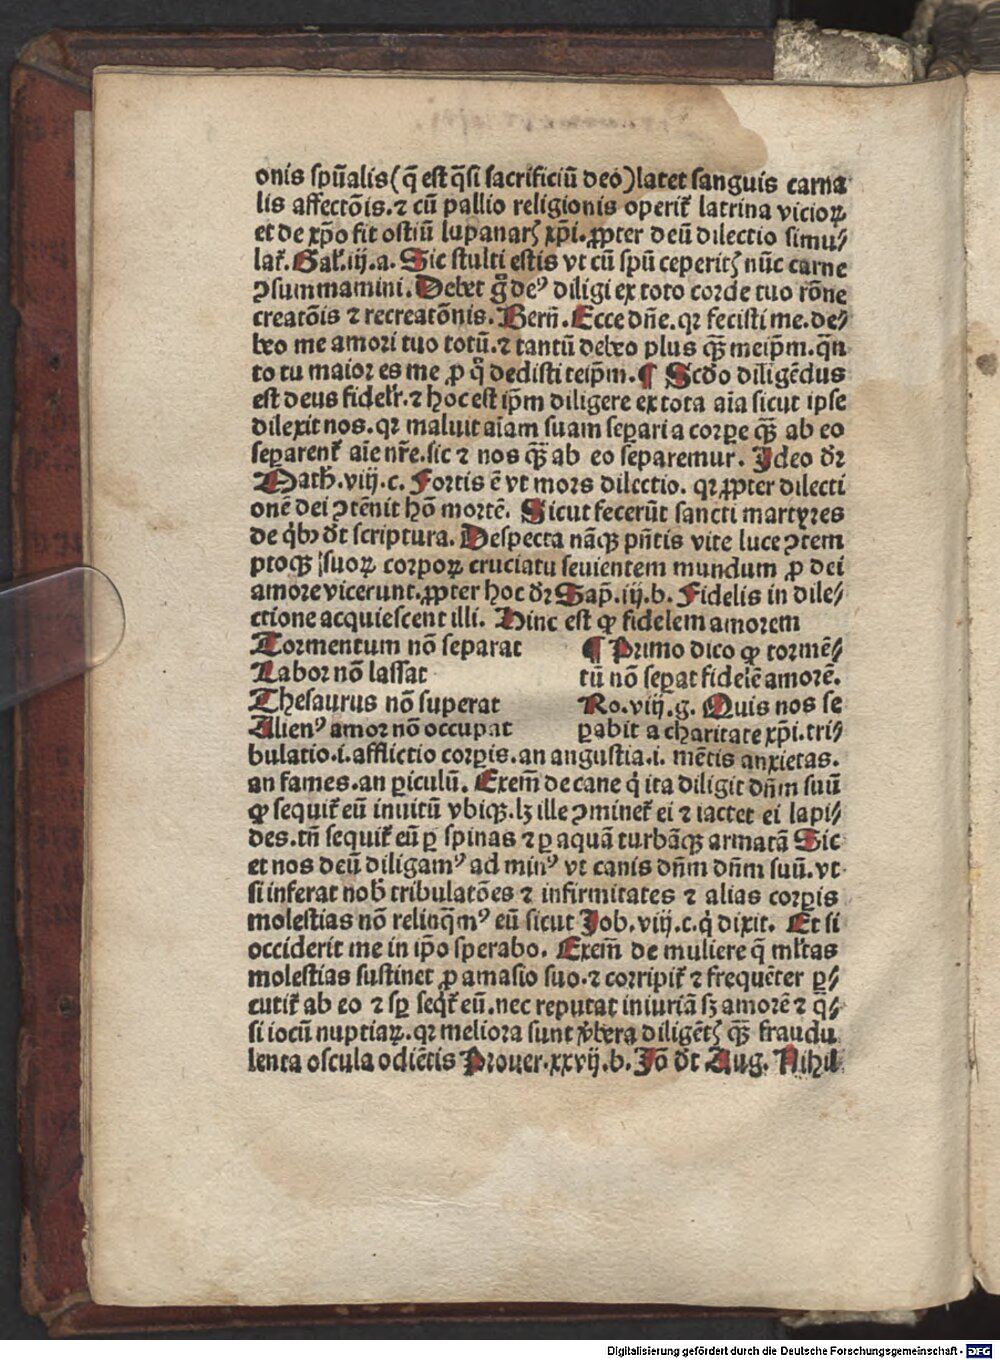 onis spūalis (q̄ est q̄si sacrificiū deo) latet sanguis carna
lis affectōis. ⁊ cū pallio religionis operit᷑ latrina vicioꝝ
et de xp̄o fit ostiū lupanarꝫ xp̄i. ꝓpter deū dilectio simu⸗
lat᷑. Gal᷑. iij. a. Sic stulti estis vt cū spū ceperitꝫ nūc carne
ꝯsummamini. Debet g̊ deꝰ diligi ex toto corde tuo rōne
creatōis ⁊ recreatōnis. Bern̄. Ecce dn̄e. qꝛ fecisti me. de⸗
beo me amori tuo totū. ⁊ tantū debeo plus q̄ꝫ meip̄m. q̄n
to tu maior es me ꝓ q̊ dedisti teip̄m. ¶ Scd̄o diligēdus
est deus fidelr᷑. ⁊ hoc est ip̄m diligere ex tota aīa sicut ipse
dilexit nos. qꝛ maluit aīam suam seꝑari a corꝑe q̄ꝫ ab eo
seꝑarent᷑ aīe nr̄e. sic ⁊ nos q̄ꝫ ab eo separemur. Ideo dr̄
Math. viij. c. Fortis ē vt mors dilectio. qꝛ ꝓpter dilecti
onē dei ꝯtēnit hō mortē. Sicut fecerūt sancti martyres
de qͥbꝫ dt̄ scriptura. Despecta nāqꝫ pn̄tis vite luce ꝯtem
ptoqꝫ suoꝝ corpoꝝ cruciatu seuientem mundum ꝓ dei
amore vicerunt. ꝓpter hoc dr̄ Sap̄. iij. b. Fidelis in dile⸗
ctione acquiescent illi. Hinc est ꝙ fidelem amorem
Tormentum nō separat
Labor nō lassat
Thesaurus nō superat
Alienꝰ amor nō occupat
¶ Primo dico ꝙ tormē⸗
tū nō seꝑat fidelē amorē.
Ro. viij. g. Quis nos se
ꝑabit a charitate xp̄i. tri⸗
bulatio. i. afflictio corꝑis. an angustia. i. mētis anxietas.
an fames. an ꝑiculū. Exem̄ de cane qͥ ita diligit dn̄m suū
ꝙ sequit᷑ eū inuitū vbiqꝫ. lꝫ ille ꝯminet᷑ ei ⁊ iactet ei lapi⸗
des. tn̄ sequit᷑ eū ꝑ spinas ⁊ ꝑ aquā turbāqꝫ armatā Sic
et nos deū diligamꝰ ad minꝰ vt canis dn̄m dn̄m suū. vt
si inferat nob᷑ tribulatōes ⁊ infirmitates ⁊ alias corꝑis
molestias nō relinq̄mꝰ eū sicut Job. viij. c. qͥ dixit. Et si
occiderit me in ip̄o sperabo. Exem̄ de muliere q̄ ml̄tas
molestias sustinet ꝓ amasio suo. ⁊ corripit᷑ ⁊ frequēter ꝑ⸗
cutit᷑ ab eo ⁊ sꝑ seqͥt᷑ eū. nec reputat iniuriā sꝫ amorē ⁊ q̄⸗
si iocū nuptiaꝝ. qꝛ meliora sunt v̓bera diligētꝫ q̄ꝫ fraudu
lenta oscula odiētis Prouer. xxvij. b. Jō dt̄ Aug. Nihil
Digitalisierung gefördert durch die Deutsche Forschungsgemeinschaft - DFG